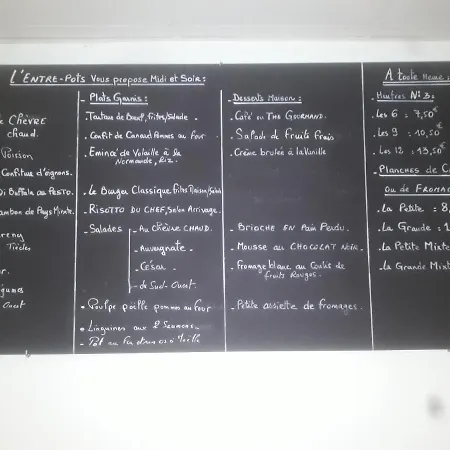 L'ENTRE-POTS Vous propose Midi et Soir :
CHÈVRE
chaud.
Confiture d'oignons.
Buffala au PESTO.
Jambon de Pays Minute.
Plats Garnis :
- Tartare de Bœuf, frites/salade.
- Confit de Canard Pommes au Four
- Emincé de Volaille à la
Normande, Riz.
- Le Burger Classique, frites Maison/salade
- RISOTTO DU CHEF, selon Arrivage.
- Salades - Au CHÈVRE CHAUD.
- Auvergnate.
- César.
- du Sud-Ouest.
- Poulpe poêlé pommes au four
- Linguines aux 2 Saumons.
- Pot au Feu
Desserts Maison :
- Café ou Thé GOURMAND.
- Salade de Fruits Frais
- Crème brulée à la Vanille
- BRIOCHE EN Pain Perdu.
- MOUSSE AU CHOCOLAT NOIR.
- Fromage blanc au Coulis de
fruits Rouges.
- Petite assiette de fromages.
A toute Heure :
Huîtres N°3 :
- Les 6 : 7,50€
- Les 9 : 10,50€
- Les 12 : 13,50€
- PLANCHES DE
OU DE FROMAGE
- La Petite : 8,
- La Grande : 1
- La Petite Mixte
- La Grande Mixte